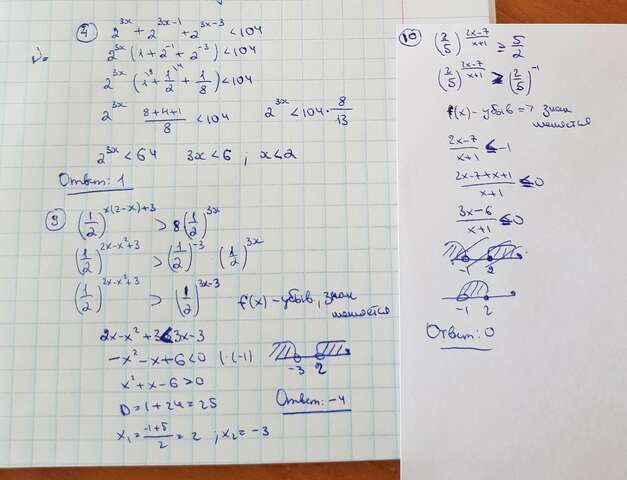 ④ 2^{3x} + 2^{3x-1} + 2^{3x-3} < 104
2^{3x} (1 + 2^{-1} + 2^{-3}) < 104
2^{3x} (1 + 1/2 + 1/8) < 104
2^{3x} (8+4+1)/8 < 104   2^{3x} < 104 · 8/13
2^{3x} < 64   3x < 6 ; x < 2
Ответ: 1
⑨ (1/2)^{x(2-x)+3} > 8 (1/2)^{3x}
(1/2)^{2x-x²+3} > (1/2)^{-3} (1/2)^{3x}
(1/2)^{2x-x²+3} > (1/2)^{3x-3}   f(x) - убыв, знак
меняется
2x - x² + 3 < 3x - 3
-x² - x + 6 < 0 | · (-1)
x² + x - 6 > 0
-3 2
D = 1 + 24 = 25
Ответ: -4
x₁ = (-1+5)/2 = 2 ; x₂ = -3
⑩ (2/5)^{(2x-7)/(x+1)} ≥ 5/2
(2/5)^{(2x-7)/(x+1)} ≥ (2/5)^{-1}
f(x) - убыв => знак
меняется
(2x-7)/(x+1) ≤ -1
(2x-7+x+1)/(x+1) ≤ 0
(3x-6)/(x+1) ≤ 0
-1 2
-1 2
Ответ: 0